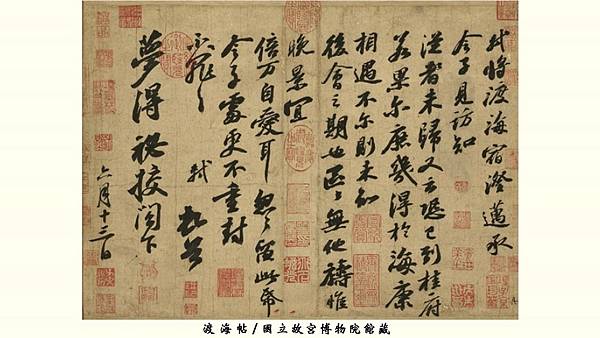 軾將渡海宿澄邁承
令子見訪知
從者未歸又云恐已到桂府
若果尔庶幾得於海康
相遇不尔則未知
後會之期也區々無他禱惟
晚景宜
倍万自愛耳忽々留此帋
令子處更不重封
不罪々　軾頓首
夢得祕校閣下
六月十三日
渡海帖/國立故宮博物院館藏